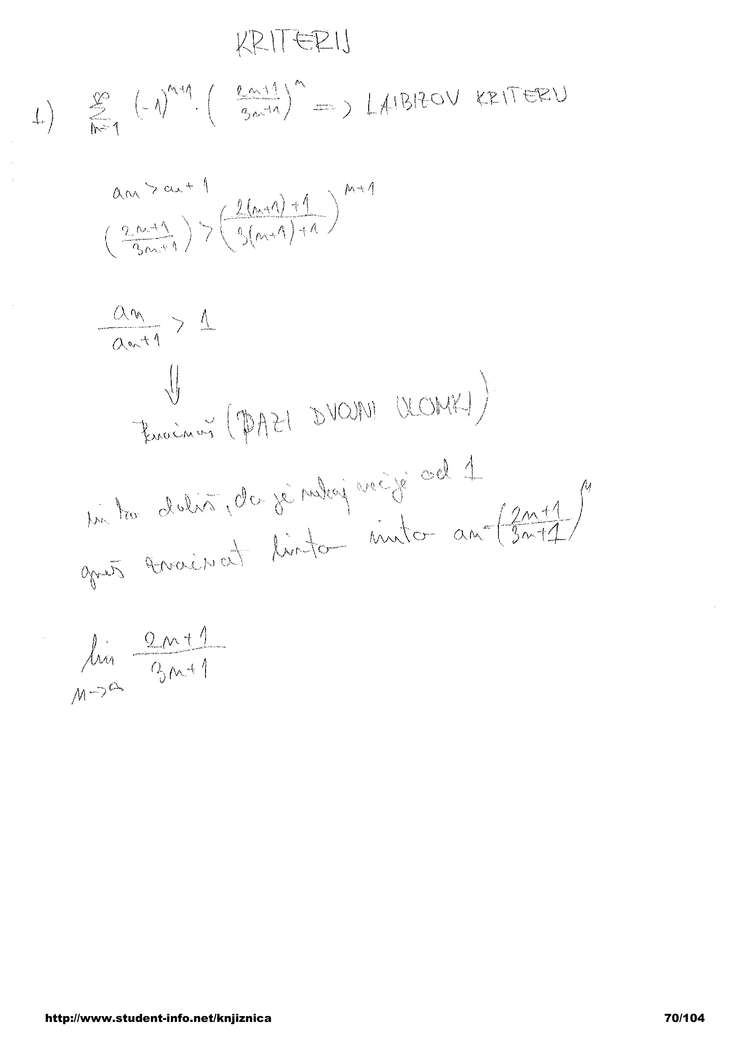 KRITERIJ
1) ∞ ∑ n=1 (-1)^{n+1} · ( \frac{2n+1}{3n+1} )^n => LAIBIZOV KRITERIJ
an > an+1
( \frac{2n+1}{3n+1} ) > ( \frac{2(n+1)+1}{3(n+1)+1} )^{n+1}
\frac{an}{an+1} > 1
⇓
(PAZI DVOJNI ULOMKI)
in ko dobiš, da je nekaj večje od 1
greš limito an = ( \frac{2n+1}{3n+1} )^n
lim n->∞ \frac{2n+1}{3n+1}
http://www.student-info.net/knjiznica 70/104